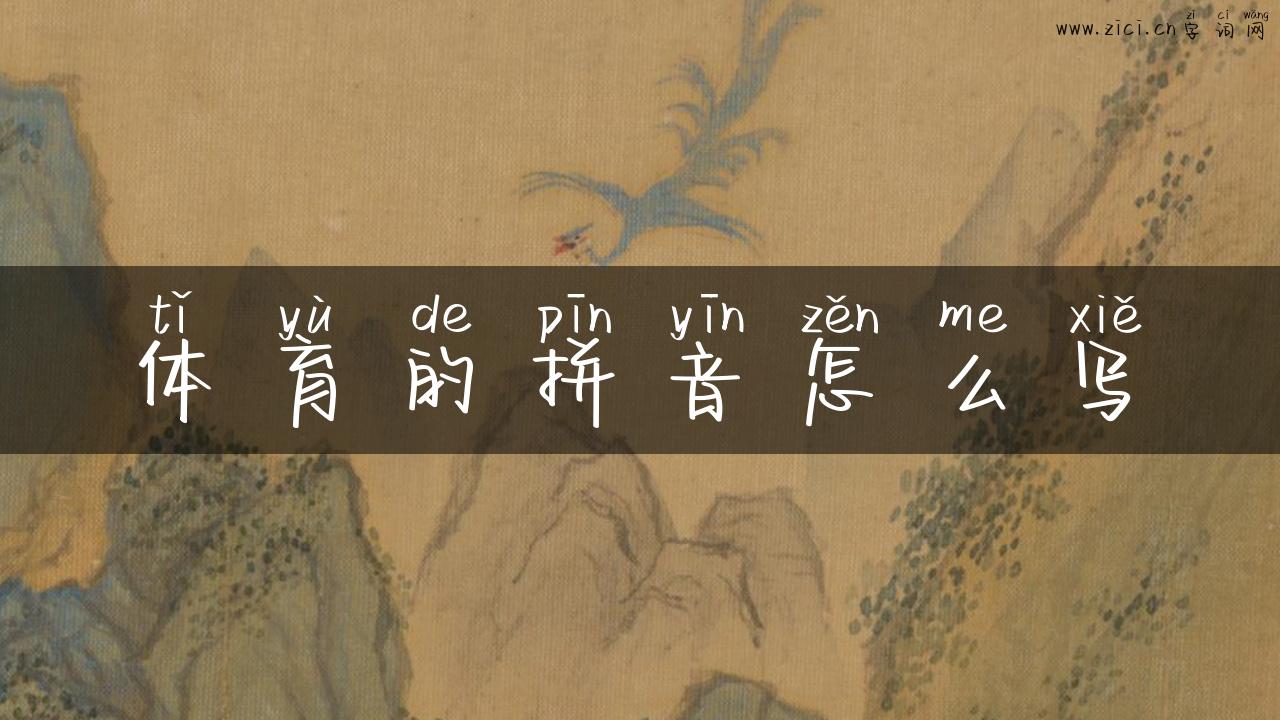 zì cí wǎng
www.zici.cn字词网
tǐ yù de pīn yīn zěn me xiě
体育的拼音怎么写